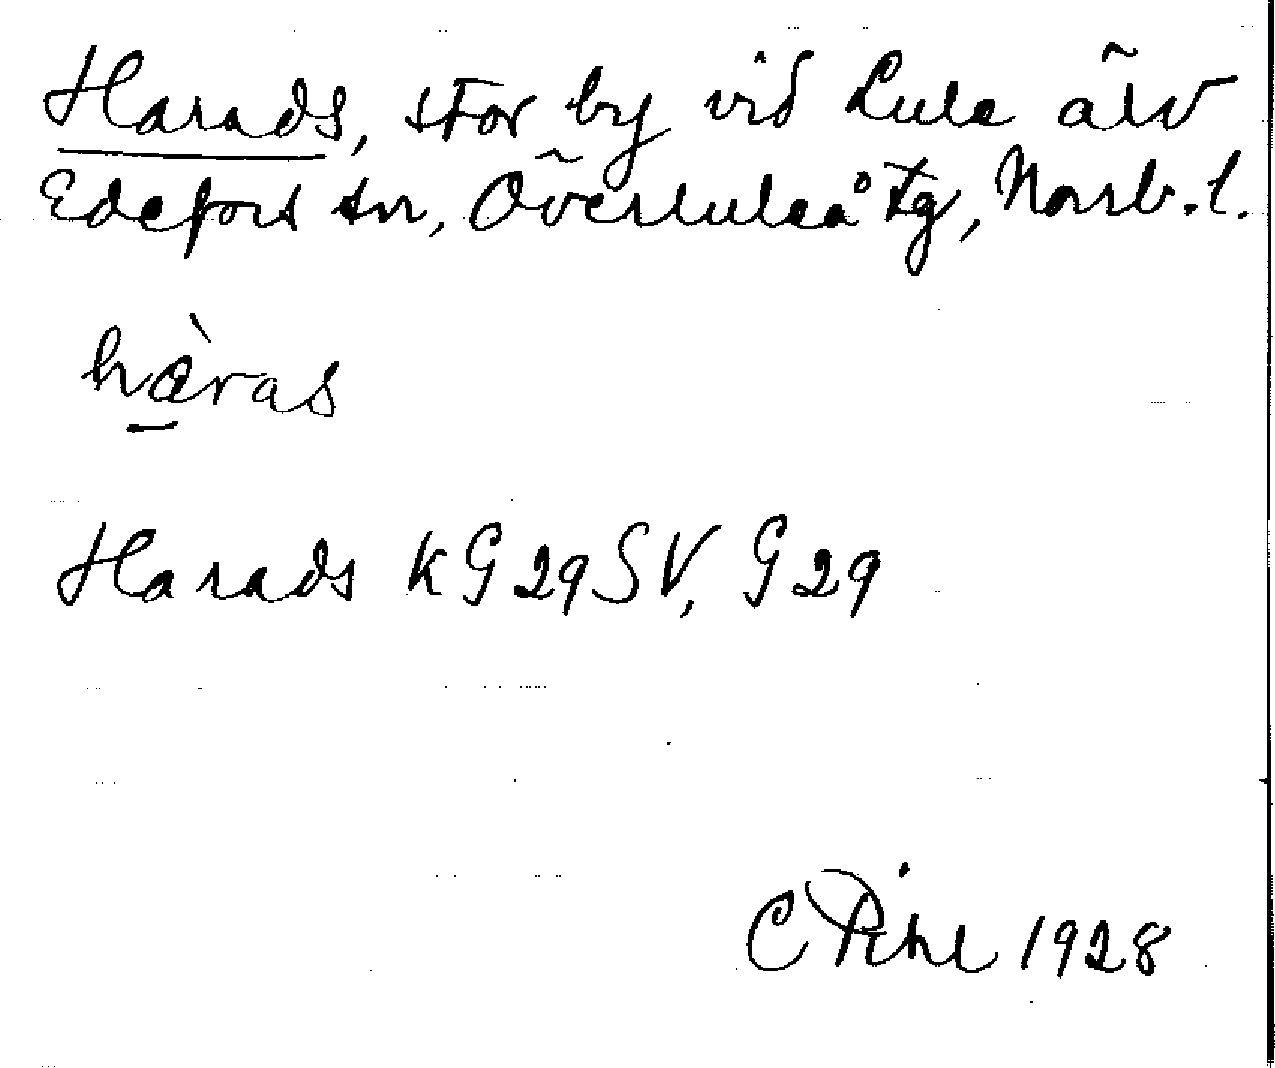 Harads, stor by vid Lule älv
Edefors sn, Överluleå tg, Norrb. l.
hàras
Harads k G 29 SV, G 29
C Pihl 1928